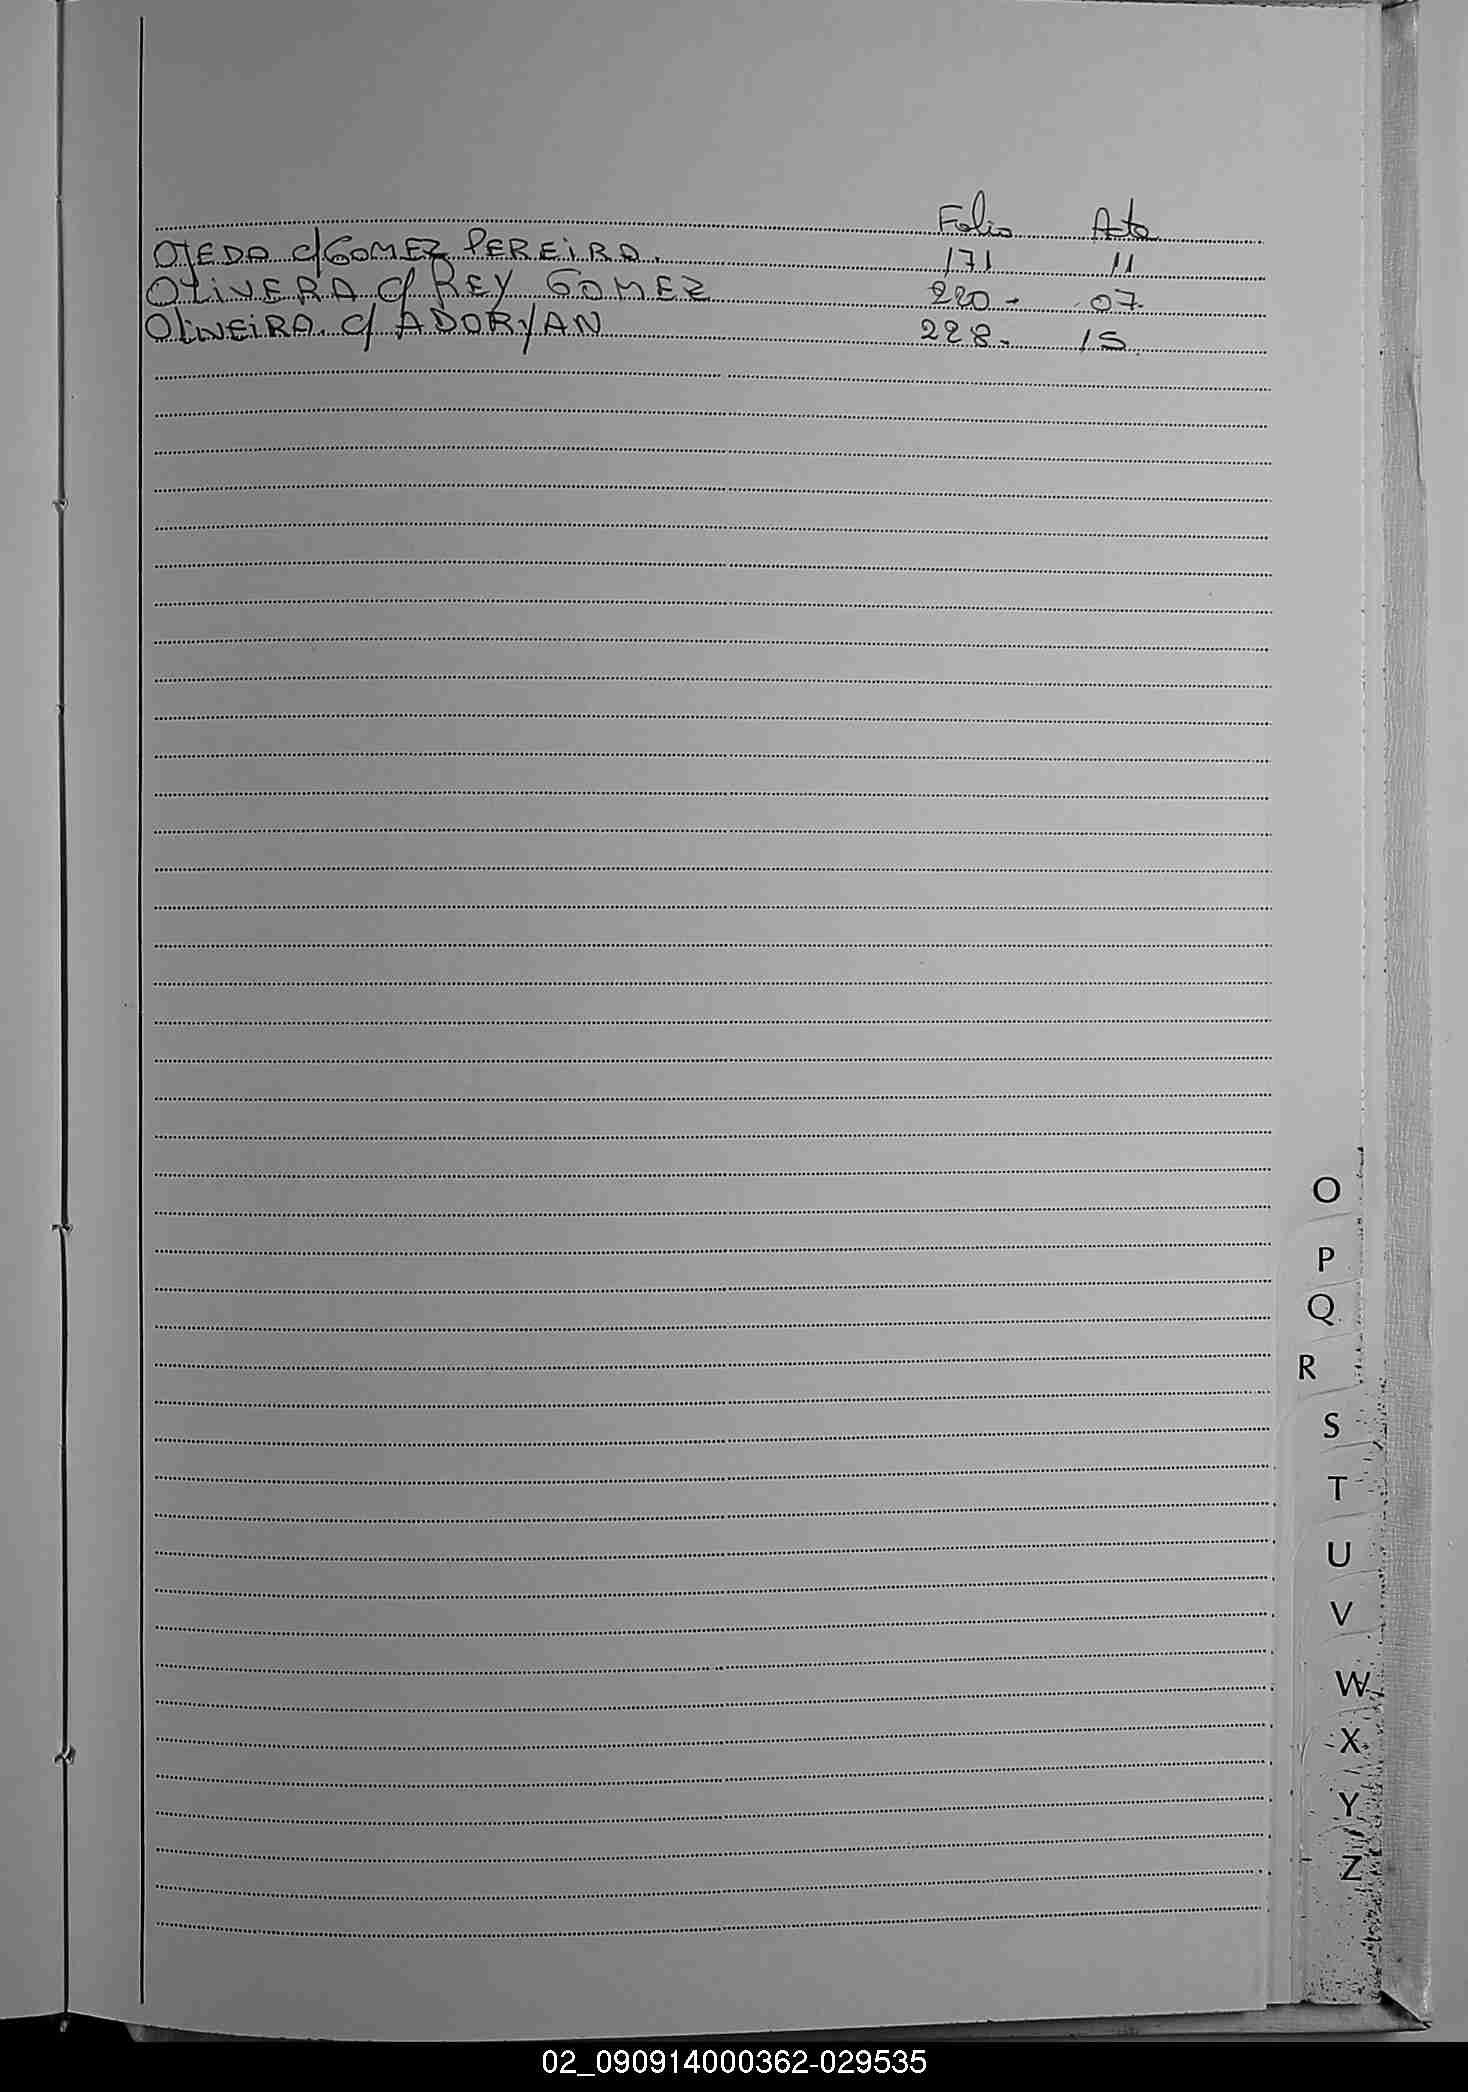 Folio Acta
OJEDA c/GOMEZ PEREIRA. 171 11
OLIVERA c/ REY GOMEZ 220- 07-
OLIVEIRA. c/ ADORYAN 228- 15
O
P
Q
R
S
T
U
V
W
X
Y
Z
02_090914000362-029535